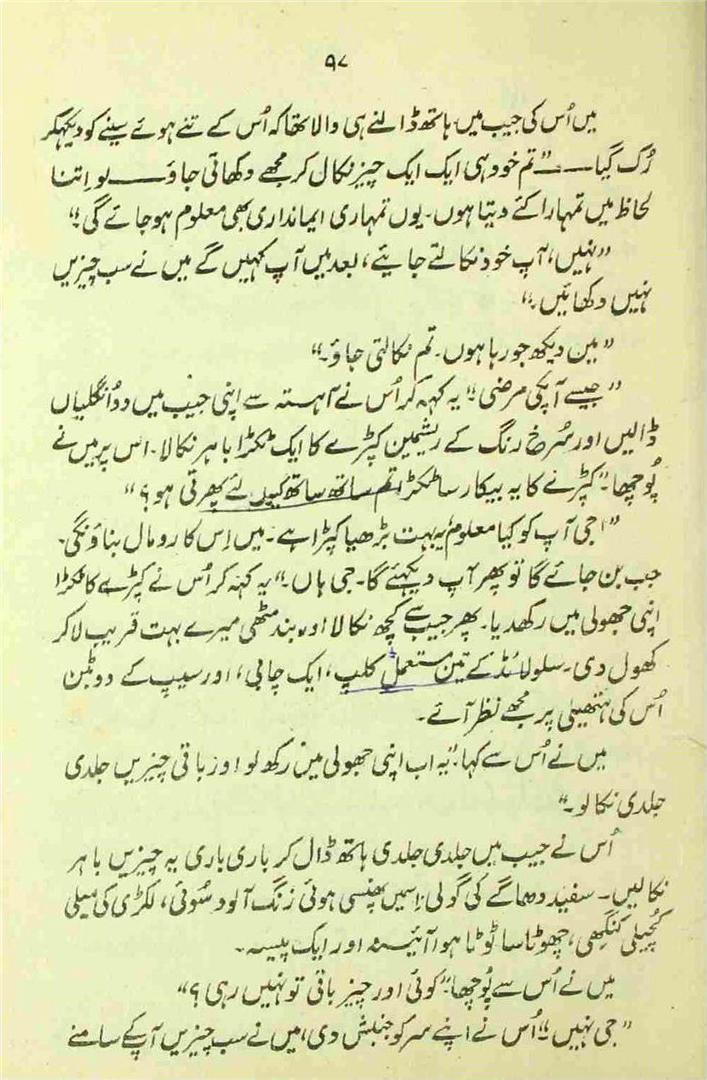 ۹۷
میں اُس کی جیب میں ہاتھ ڈالنے ہی والا تھا کہ اُس کے تنے ہوئے سینے کو دیکھکر
رُک گیا ــــ ”تم خود ہی ایک ایک چیز نکال کر مجھے دکھاتی جاؤ ــــ لو اِتنا
لحاظ میں تمہارا کئے دیتا ہوں۔ یوں تمہاری ایمانداری بھی معلوم ہو جائے گی۔“
”نہیں، آپ خود نکالتے جایئے، بعد میں آپ کہیں گے میں نے سب چیزیں
نہیں دکھائیں۔“
”میں دیکھ جو رہا ہوں۔ تم نکالتی جاؤ۔“
”جیسے آپکی مرضی۔“ یہ کہہ کر اُس نے آہستہ سے اپنی جیب میں دو اُنگلیاں
ڈالیں اور سُرخ رنگ کے ریشمین کپڑے کا ایک ٹکڑا باہر نکالا۔ اس پر میں نے
پُوچھا۔ ”کپڑے کا یہ بیکار سا ٹکڑا تم ساتھ ساتھ کیوں لئے پھرتی ہو؟“
”اجی آپ کو کیا معلوم یہ بہت بڑھیا کپڑا ہے۔ میں اِس کا رومال بناؤنگی۔
جب بن جائے گا تو پھر آپ دیکھئے گا۔ جی ہاں۔“ یہ کہہ کر اُس نے کپڑے کا ٹکڑا
اپنی جھولی میں رکھدیا۔ پھر جیب سے کچھ نکالا اور بند مٹھی میرے بہت قریب لا کر
کھول دی۔ سلولائڈ کے تین مستعمل کلپ، ایک چابی، اور سیپ کے دو بٹن
اُس کی ہتھیلی پر مجھے نظر آئے۔
میں نے اُس سے کہا۔ ”یہ اب اپنی جھولی میں رکھ لو اور باقی چیزیں جلدی
جلدی نکالو۔“
اُس نے جیب میں جلدی جلدی ہاتھ ڈال کر باری باری یہ چیزیں باہر
نکالیں۔ سفید دھاگے کی گولی، اِسمیں پھنسی ہوئی زنگ آلود سُوئی، لکڑی کی میلی
کُچیلی کنگھی، چھوٹا سا ٹوٹا ہوا آئینہ اور ایک پیسہ۔
میں نے اُس سے پُوچھا۔ ”کوئی اور چیز باقی تو نہیں رہی؟“
”جی نہیں۔“ اُس نے اپنے سر کو جنبش دی، میں نے سب چیزیں آپکے سامنے